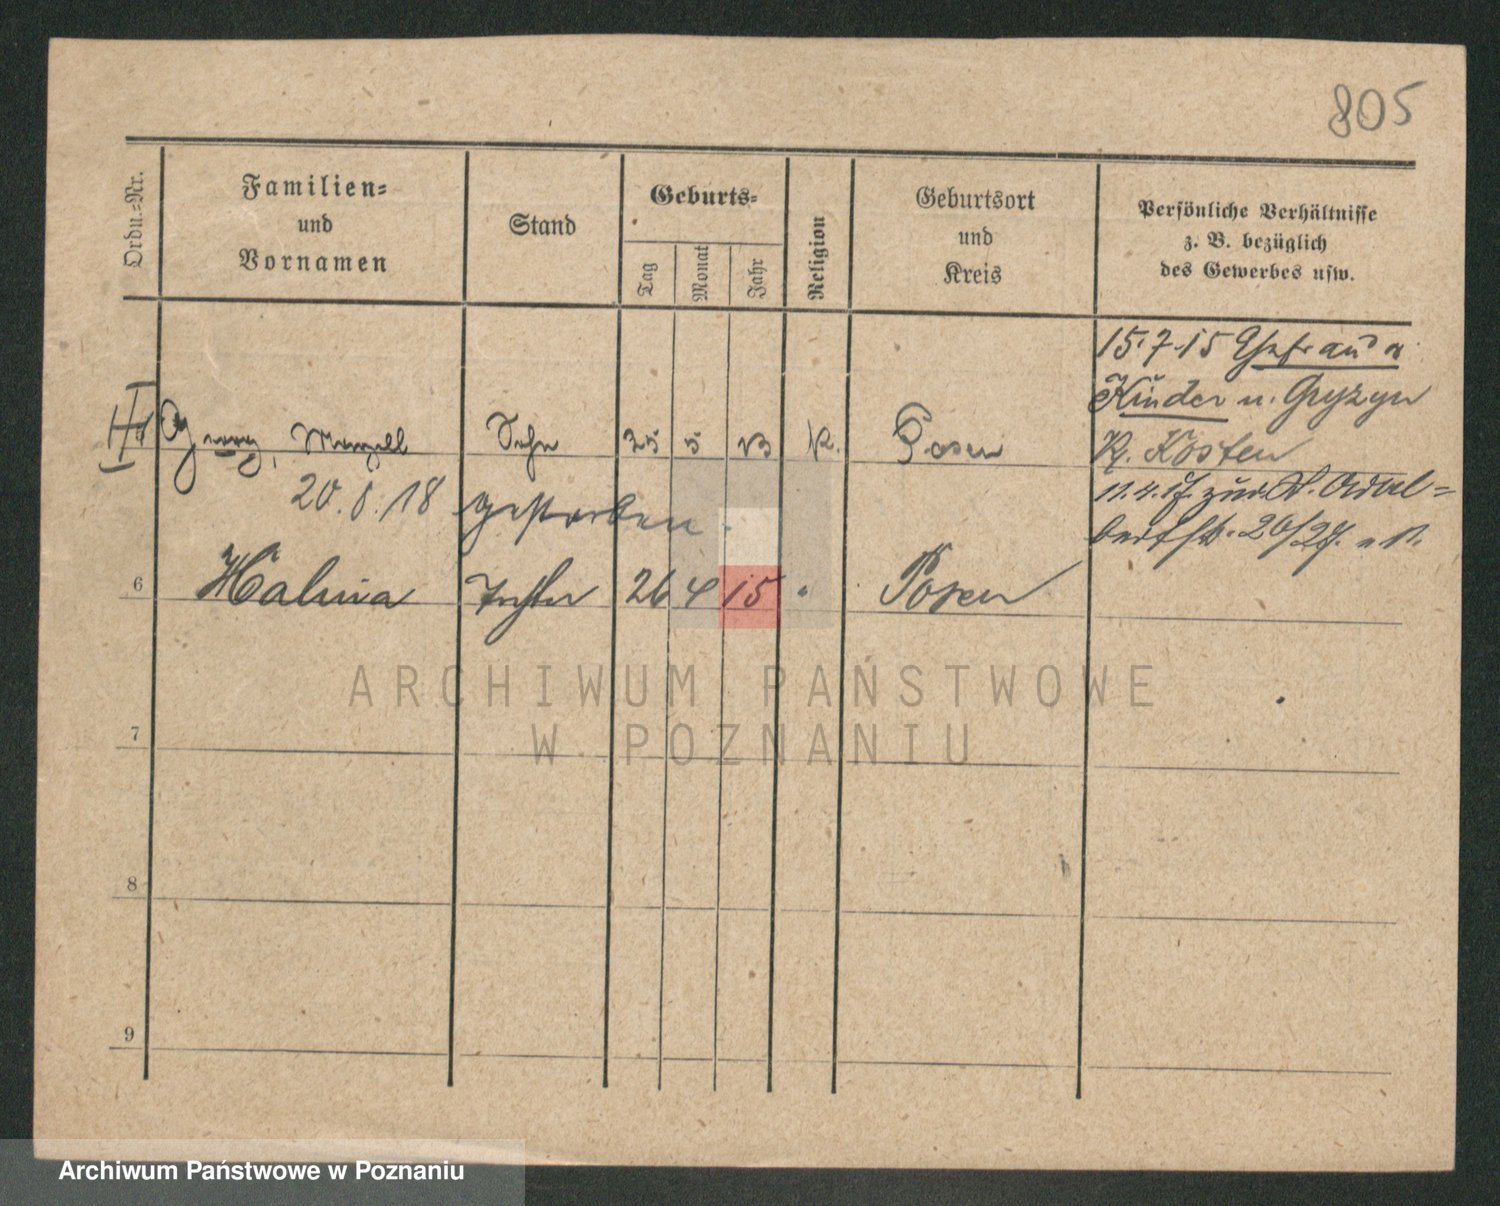 805
Ordn.-Nr.
Familien-
und
Vornamen
Stand
Geburts-
Tag
Monat
Jahr
Religion
Geburtsort
und
Kreis
Persönliche Verhältnisse
z. B. bezüglich
des Gewerbes usw.
15.7.15 Ehefrau u
Kinder n. Gryzyn
K. Kosten
Sohn 25 5 13 K. Posen
20.8.18 gestorben.
11.4.17 zur. St. Adal-
bertstr. 26/27.
6 Halina Tochter 26 4 15 " Posen
7
8
9
ARCHIWUM PAŃSTWOWE
W POZNANIU
Archiwum Państwowe w Poznaniu